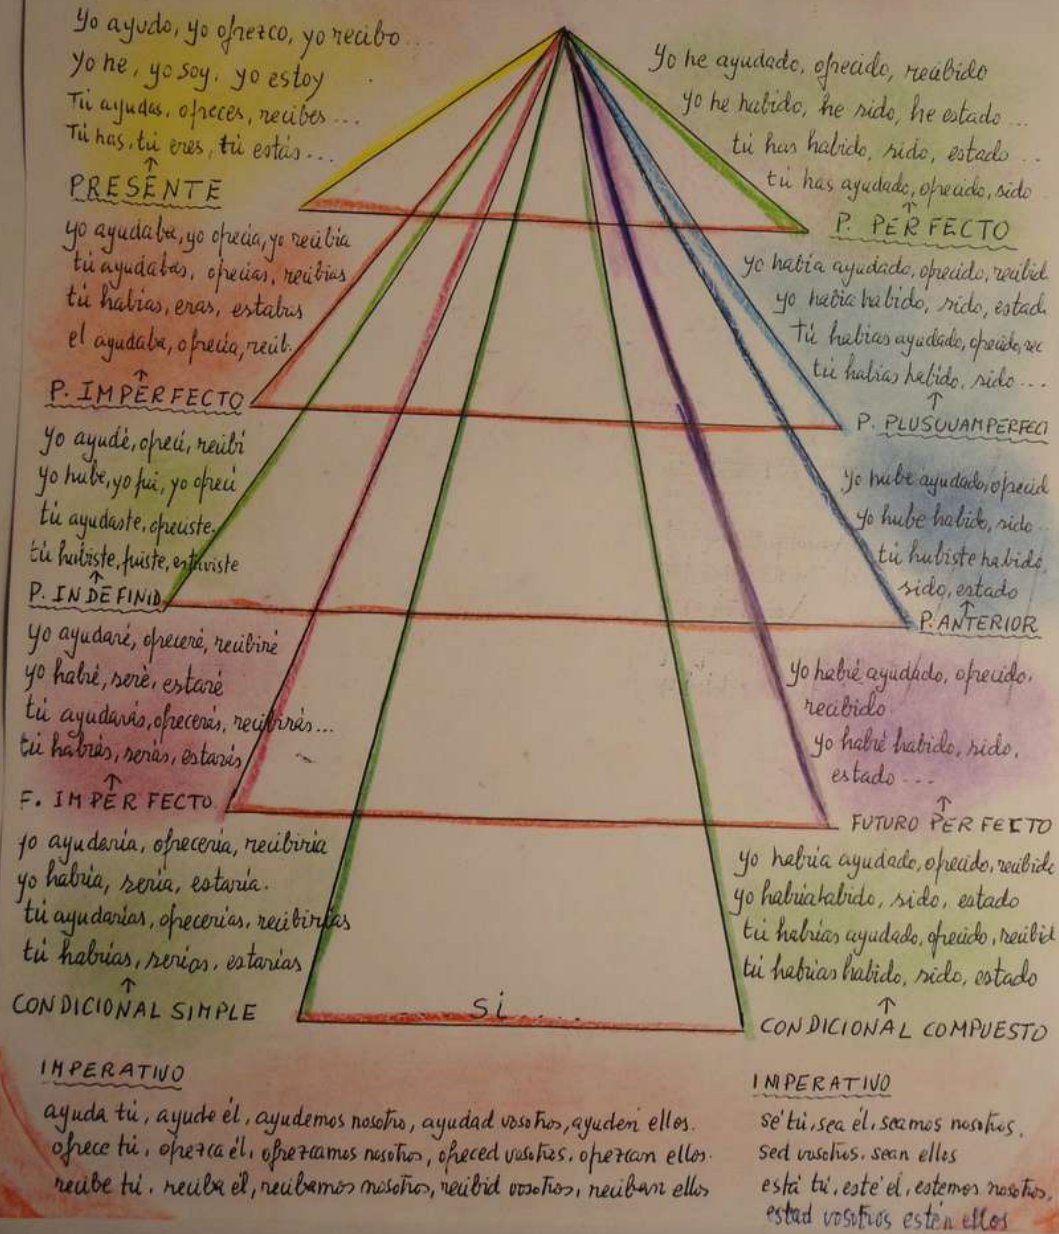 Yo ayudo, yo ofrezco, yo recibo...
Yo he, yo soy, yo estoy
Tú ayudas, ofreces, recibes...
Tú has, tú eres, tú estás...
↑
PRESENTE
yo ayudaba, yo ofrecía, yo recibía
tú ayudabas, ofrecías, recibías
tú habías, eras, estabas
el ayudaba, ofrecía, recib.
↑
P. IMPERFECTO
Yo ayudé, ofrecí, recibí
yo hube, yo fui, yo ofrecí
tú ayudaste, ofreciste,
tú hubiste, fuiste, estuviste
↑
P. INDEFINID
yo ayudaré, ofreceré, recibiré
yo habré, seré, estaré
tú ayudarás, ofrecerás, recibirás...
tú habrás, serás, estarás
↑
F. IMPERFECTO
yo ayudaría, ofrecería, recibiría
yo habría, sería, estaría.
tú ayudarías, ofrecerías, recibirías
tú habrías, serías, estarías
↑
CONDICIONAL SIMPLE
Yo he ayudado, ofrecido, recibido
yo he habido, he sido, he estado...
tú has habido, sido, estado..
tú has ayudado, ofrecido, sido
↑
P. PERFECTO
yo había ayudado, ofrecido, recibid
yo había habido, sido, estad
Tú habías ayudado, ofrecido, rec
tú habías habido, sido...
↑
P. PLUSCUAMPERFECT
Yo hube ayudado, ofrecid
yo hube habido, sido..
tú hubiste habido,
sido, estado
↑
P. ANTERIOR
yo habré ayudado, ofrecido,
recibido
yo habré habido, sido,
estado...
↑
FUTURO PERFECTO
yo habría ayudado, ofrecido, recibido
yo habría habido, sido, estado
tú habrías ayudado, ofrecido, recibid
tú habrías habido, sido, estado
↑
CONDICIONAL COMPUESTO
Si....
IMPERATIVO
ayuda tú, ayude él, ayudemos nosotro, ayudad vosotros, ayuden ellos.
ofrece tú, ofrezca él, ofrezcamos nosotros, ofreced vosotros, ofrezcan ellos.
recibe tú, reciba él, recibamos nosotros, recibid vosotros, reciban ellos
IMPERATIVO
sé tú, sea él, seamos nosotros,
sed vosotros, sean ellos
está tú, esté él, estemos nosotros,
estad vosotros estén ellos